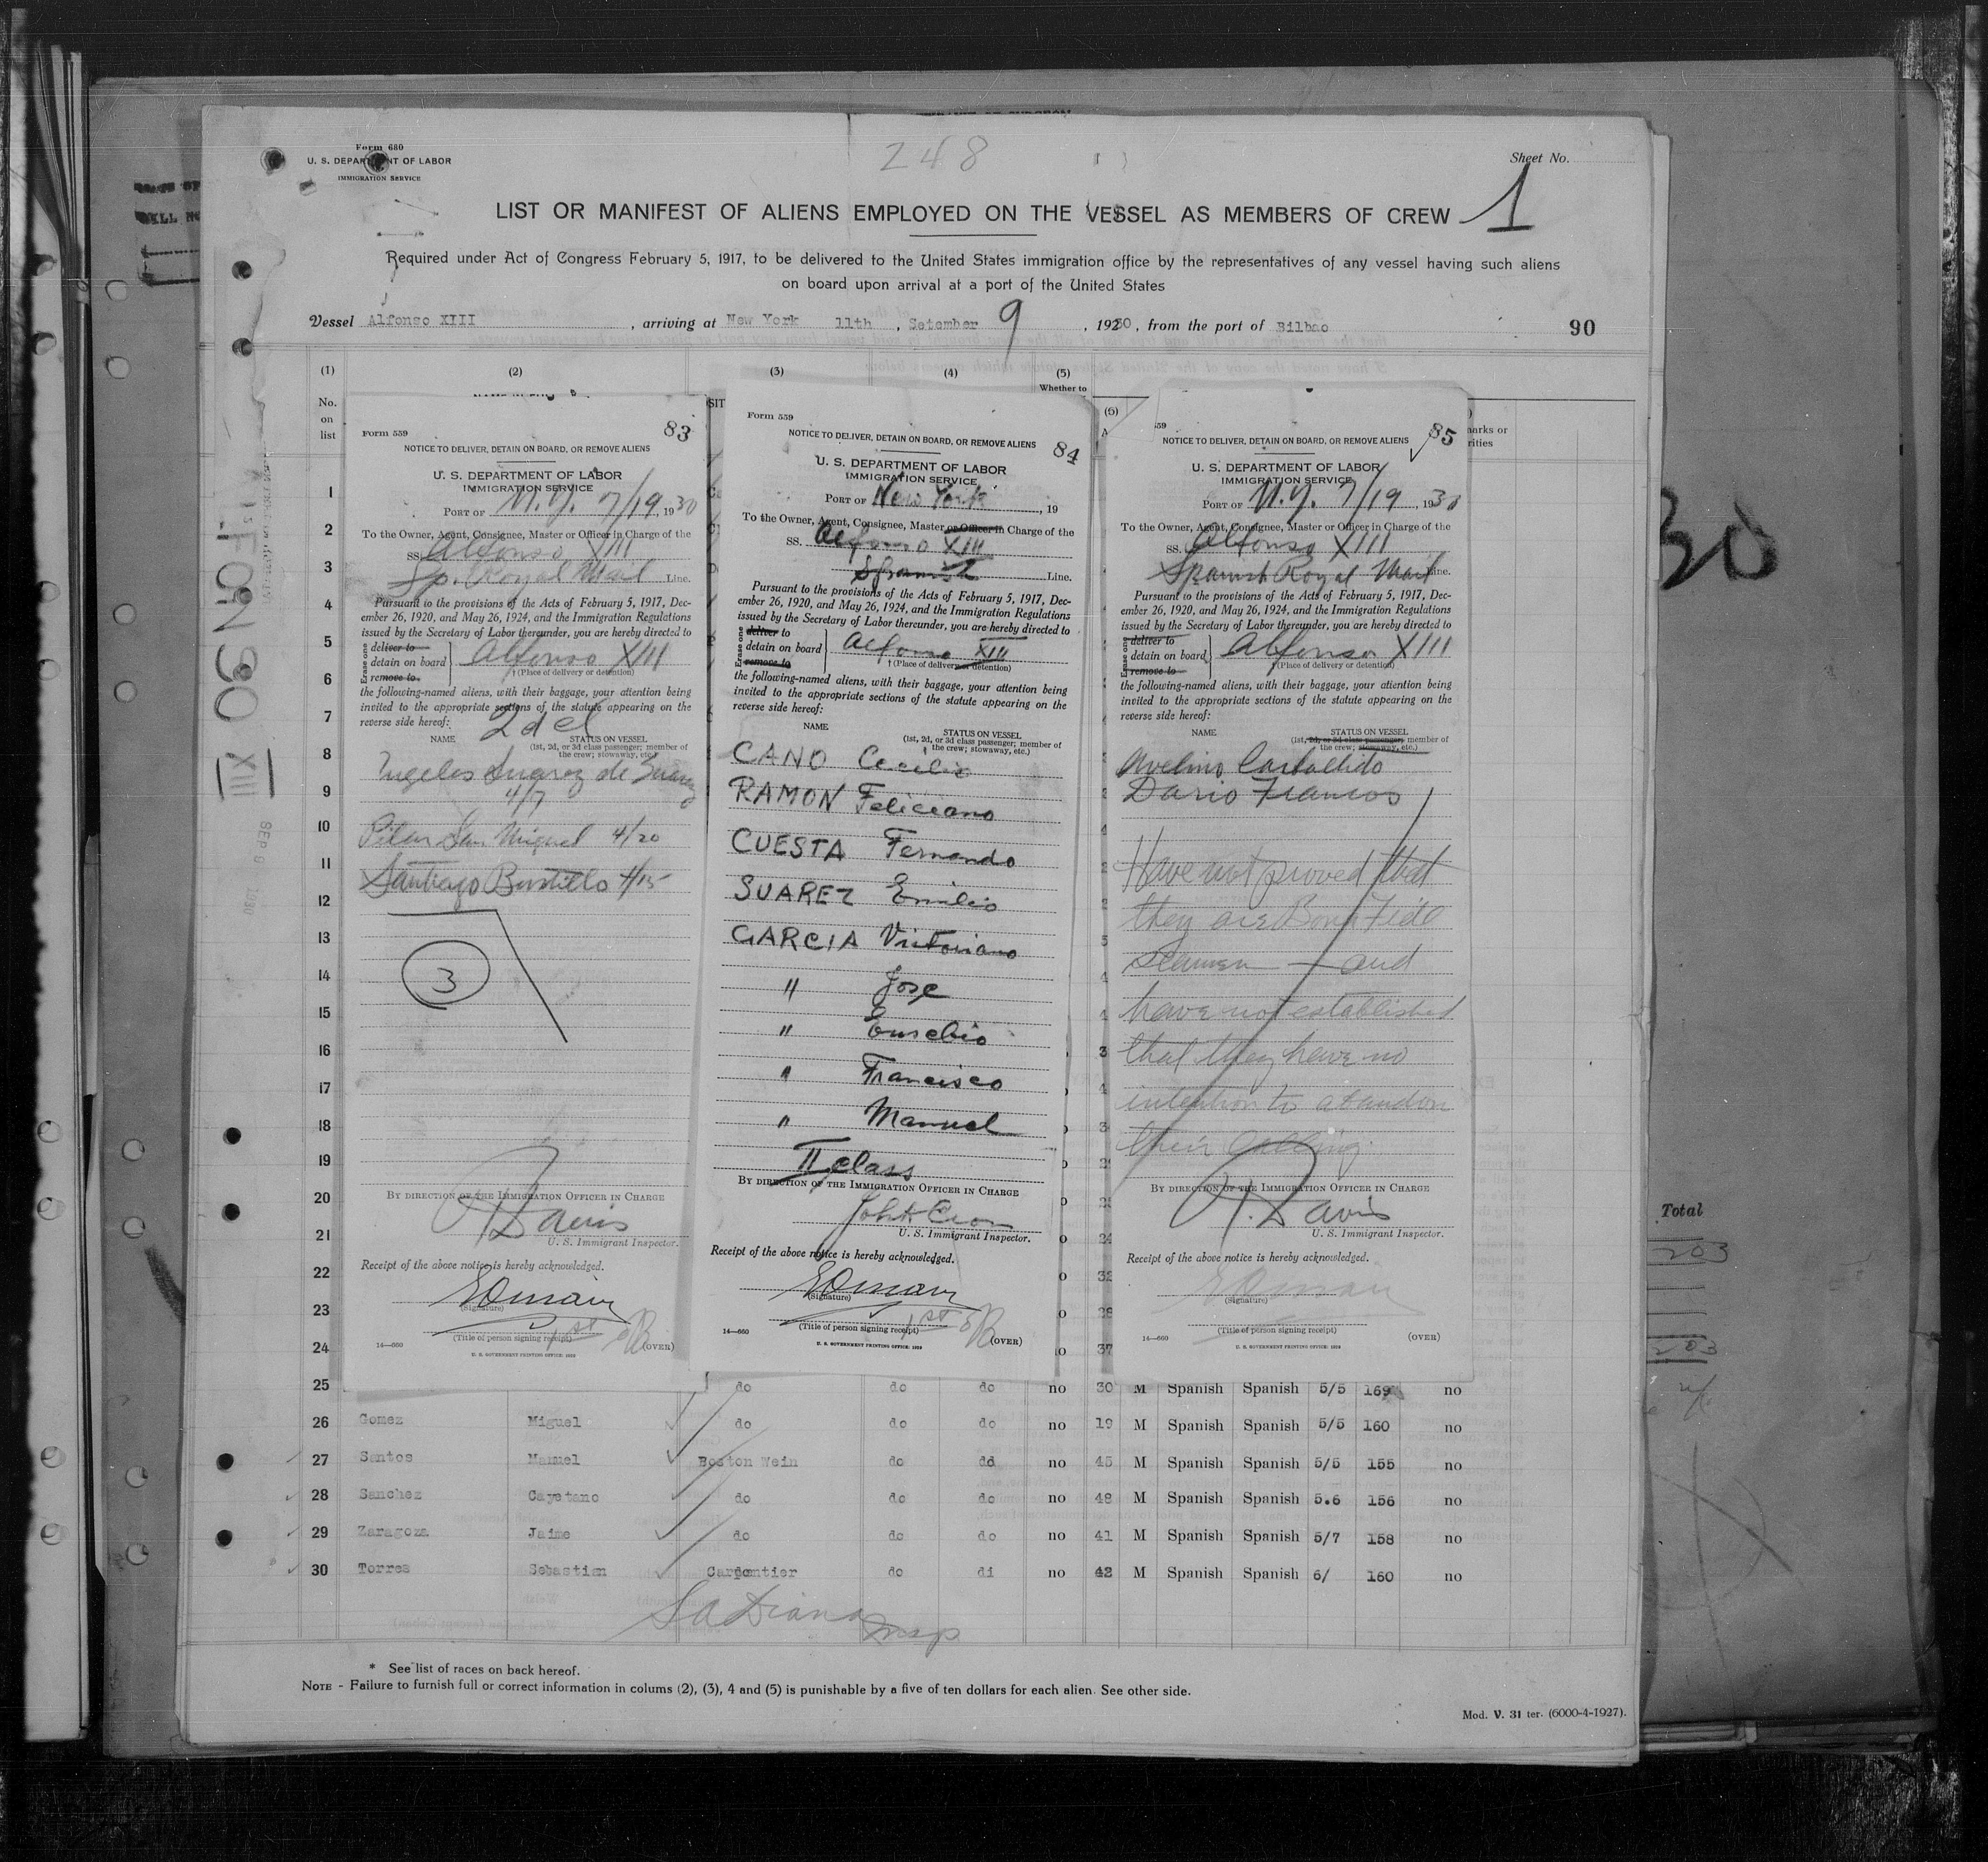 Form 680
U. S. DEPARTMENT OF LABOR
IMMIGRATION SERVICE
248
Sheet No.
1
LIST OR MANIFEST OF ALIENS EMPLOYED ON THE VESSEL AS MEMBERS OF CREW
Required under Act of Congress February 5, 1917, to be delivered to the United States immigration office by the representatives of any vessel having such aliens
on board upon arrival at a port of the United States
Vessel Alfonso XIII , arriving at New York 11th , Setember 9 , 1930 , from the port of Bilbao 90
(1) (2) (3) (4) (5) (6)
Whether to
No.
on
list
1
2
3
4
5
6
7
8
9
10
11
12
13
14
15
16
17
18
19
20
21
22
23
24
Form 559
83
NOTICE TO DELIVER, DETAIN ON BOARD, OR REMOVE ALIENS
U. S. DEPARTMENT OF LABOR
IMMIGRATION SERVICE
PORT OF N.Y. 7/19, 1930
To the Owner, Agent, Consignee, Master or Officer in Charge of the
SS. Alfonso XIII
Sp. Royal Mail Line.
Pursuant to the provisions of the Acts of February 5, 1917, Dec-
ember 26, 1920, and May 26, 1924, and the Immigration Regulations
issued by the Secretary of Labor thereunder, you are hereby directed to
Erase one
deliver to
detain on board Alfonso XIII
remove to
† (Place of delivery or detention)
the following-named aliens, with their baggage, your attention being
invited to the appropriate sections of the statute appearing on the
reverse side hereof:
2d cl
NAME STATUS ON VESSEL
(1st, 2d, or 3d class passenger; member of
the crew; stowaway, etc.)
Angeles Suarez de Suarez
4/7
Pilar San Miguel 4/20
Santiago Bustillo 4/15
3
BY DIRECTION OF THE IMMIGRATION OFFICER IN CHARGE
Davis
U. S. Immigrant Inspector.
Receipt of the above notice is hereby acknowledged.
(Signature)
1st
(Title of person signing receipt)
14—660 (OVER)
U. S. GOVERNMENT PRINTING OFFICE: 1929
Form 559
84
NOTICE TO DELIVER, DETAIN ON BOARD, OR REMOVE ALIENS
U. S. DEPARTMENT OF LABOR
IMMIGRATION SERVICE
PORT OF New York , 19
To the Owner, Agent, Consignee, Master or Officer in Charge of the
SS. Alfonso XIII
Spanish Line.
Pursuant to the provisions of the Acts of February 5, 1917, Dec-
ember 26, 1920, and May 26, 1924, and the Immigration Regulations
issued by the Secretary of Labor thereunder, you are hereby directed to
Erase one
deliver to
detain on board Alfonso XIII
remove to
† (Place of delivery or detention)
the following-named aliens, with their baggage, your attention being
invited to the appropriate sections of the statute appearing on the
reverse side hereof:
NAME STATUS ON VESSEL
(1st, 2d, or 3d class passenger; member of
the crew; stowaway, etc.)
CANO Cecilio
RAMON Feliciano
CUESTA Fernando
SUAREZ Emilio
GARCIA Victoriano
" Jose
" Eusebio
" Francisco
" Manuel
II class
BY DIRECTION OF THE IMMIGRATION OFFICER IN CHARGE
U. S. Immigrant Inspector.
Receipt of the above notice is hereby acknowledged.
(Signature)
1st
(Title of person signing receipt)
14—660 (OVER)
U. S. GOVERNMENT PRINTING OFFICE: 1929
559
85
NOTICE TO DELIVER, DETAIN ON BOARD, OR REMOVE ALIENS
U. S. DEPARTMENT OF LABOR
IMMIGRATION SERVICE
PORT OF N.Y. 7/19, 1930
To the Owner, Agent, Consignee, Master or Officer in Charge of the
SS. Alfonso XIII
Spanish Royal Mail Line.
Pursuant to the provisions of the Acts of February 5, 1917, Dec-
ember 26, 1920, and May 26, 1924, and the Immigration Regulations
issued by the Secretary of Labor thereunder, you are hereby directed to
Erase one
deliver to
detain on board Alfonso XIII
remove to
† (Place of delivery or detention)
the following-named aliens, with their baggage, your attention being
invited to the appropriate sections of the statute appearing on the
reverse side hereof:
NAME STATUS ON VESSEL
(1st, 2d, or 3d class passenger; member of
the crew; stowaway, etc.)
Avelino Carballido
Dario Francos
Have not proved that
they are Bona Fide
seamen — and
have not established
that they have no
intention to abandon
their calling.
BY DIRECTION OF THE IMMIGRATION OFFICER IN CHARGE
Davis
U. S. Immigrant Inspector.
Receipt of the above notice is hereby acknowledged.
(Signature)
(Title of person signing receipt)
14—660 (OVER)
U. S. GOVERNMENT PRINTING OFFICE: 1929
25 do do do no 30 M Spanish Spanish 5/5 169 no
26 Gomez Miguel do do do no 19 M Spanish Spanish 5/5 160 no
27 Santos Manuel Boston Wein do dd no 45 M Spanish Spanish 5/5 155 no
28 Sanchez Cayetano do do do no 48 M Spanish Spanish 5.6 156 no
29 Zaragoza Jaime do do do no 41 M Spanish Spanish 5/7 158 no
30 Torres Sebastian Carpentier do di no 42 M Spanish Spanish 6/ 160 no
* See list of races on back hereof.
NOTE - Failure to furnish full or correct information in colums (2), (3), 4 and (5) is punishable by a five of ten dollars for each alien. See other side.
Mod. V. 31 ter. (6000-4-1927).
SEP 9 1930
XIII
30
Total
203
203